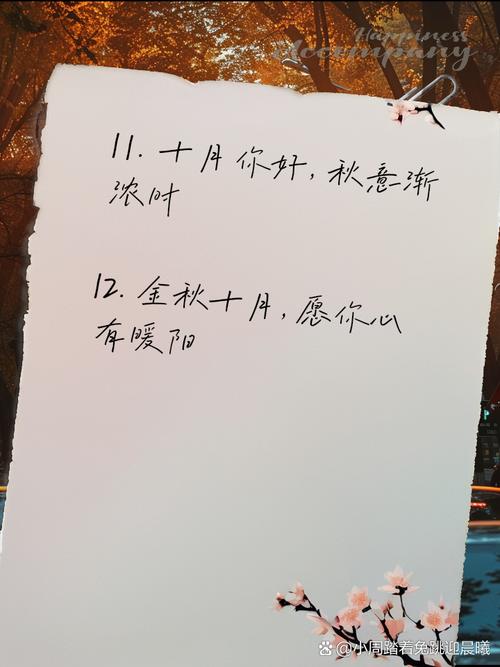 Happiness
accompany
11. 十月你好，秋意渐
浓时
12. 金秋十月，愿你心
有暖阳
@小周踏着兔跳迎晨曦